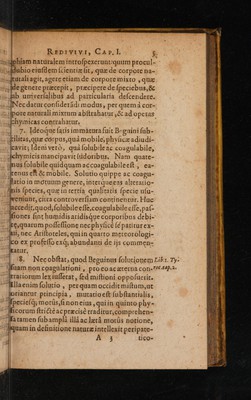 REDIVIVI, CAP. I. 5
phiam naturalem introspexerunt quum procul-
dubio eiusdem scientiæ sit, quæ de corpore na-
turali agit, agere etiam de corpore mixto, quæ
de genere præcepit, præcipere de speciebus, &
ab universalibus ad particularia descendere.
Nec datur considerandi modus, per quem à cor-
pore naturali mixtum abstrahatur, & ad operas
chymicas contrahatur.
7. Ideoque satis immatura fuit Beguini sub-
tilitas, quæ corpus, quâ mobile, physicæ adiudi-
cavit; Idem verò, quâ solubile ac coagulabile,
chymicis mancipavit Isidoribus. Nam quate-
nus solubile quidquam ac coagulabile est,
eatenus est & mobile. Solutio quippe ac coagu-
latio in motuum genere, interque eas alteratio-
nis species, quæ in tertia qualitatis specie usu-
veniunt, citra controversiam continentur. Huc
accedit, quod, solubile esse, coagulabile esse, pas-
siones sint humidis aridisque corporibus debi-
tæ, quarum possessione nec physicè ipsi patitur ex-
ui, nec Aristoteles, qui in quarto meteorologi-
co ex professo exque abundanti de iis commen-
tatur.
8. Nec obstat, quod Beguinus solutionem
suam non coagulationi, pro eo ac æterna con-
trariorum lex iusserat, sed missioni opposuerit.
Lib. 2. Ty-
roc. cap. 2.
Illa enim solutio, per quam occidit mistum, ut
oriantur principia, mutatio est substantialis,
speciesque motus, si non eius, qui in quinto phy-
sicorum strictè ac præcisè traditur, comprehen-
sa tamen sub ampla illa ac laxâ motûs notione,
quam in definitione naturæ intellexit peripate-
A 3 tico-